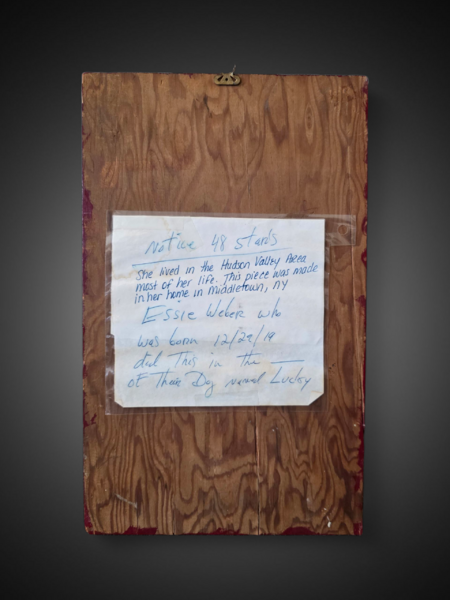 Notice 48 Stars
She lived in the Hudson Valley Area
most of her life. This piece was made
in her home in Middletown, NY
Essie Weber who
was born 12/29/19
did This in the ___
of Their Dog named Lucky